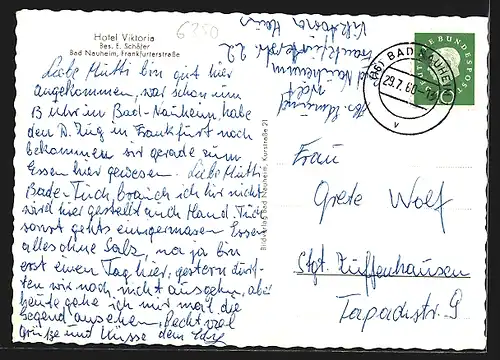 Hotel Viktoria
Bes. E. Schäfer
Bad Nauheim, Frankfurterstraße
6350
Liebe Mutti bin gut hier
angekommen, war schon um
13 Uhr in Bad-Nauheim, habe
den D. Zug in Frankfurt noch
bekommen wir gerade zum
Essen hier gewesen. Liebe Mutti
Bade-Tuch brauch ich hir nicht
wird hier gestellt auch Hand-Tuch
sonst gehts einigermasen Essen
alles ohne Salz, na ja bin
erst einen Tag hier, gestern dürf-
ten wir noch nicht ausgehen, aber
heute gehe ich mir mal die
Gegend ansehen, Recht viel
Grüße und Küsse dein
Viktoria Heim
Frankfurterstr. 22
Bad Nauheim
Bildverlag Bad Nauheim, Kurstraße 21
DEUTSCHE BUNDESPOST
10
BAD NAUHEIM
29.7.60
v
Frau
Grete Wolf
Stgt. Zuffenhausen
Tapachstr. 9